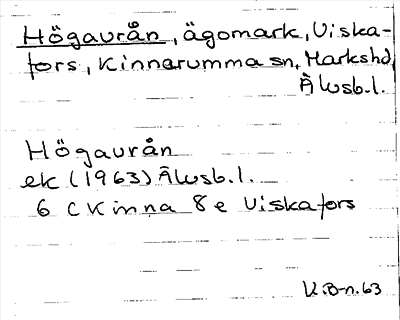 Högaurån, ägomark, Viska-
fors, Kinnarumma sn, Markshd,
Älvsb.l.
Högaurån
ek (1963) Älvsb.l.
6 C Kinna 8 e Viskafors
K.B-n.63